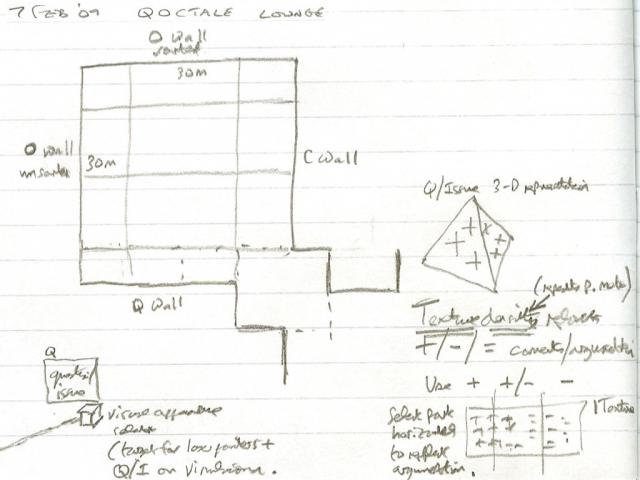 7 FEB '09 QOCTALE LOUNGE
O Wall
sorted
30m
O wall
unsorted
30m
C Wall
Q Wall
Q/Issue 3-D representation
(repeats p. note)
Texture density reflects
+/-/= comments/argumentation
Use + +/- -
Select park
horizontal
to reflect
argumentation.
1 Texture
Q
question/
issue
visual appearance
(target for laser pointers +
Q/I on